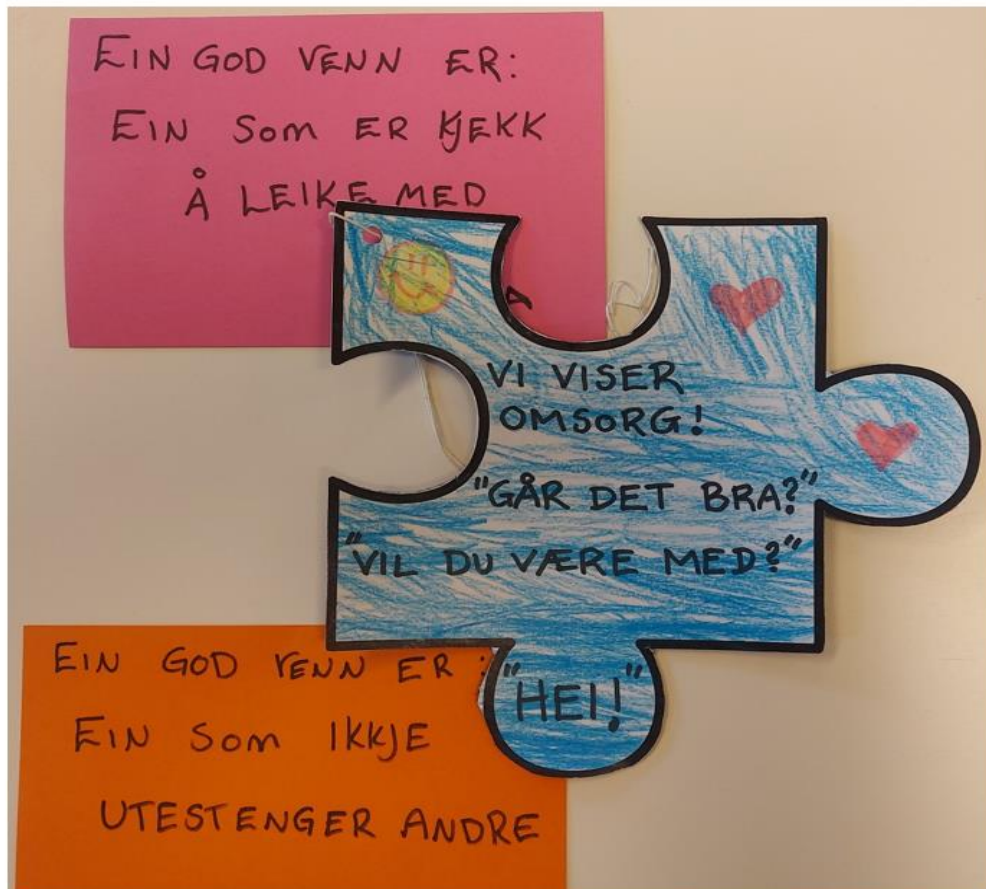 EIN GOD VENN ER:
EIN SOM ER KJEKK
Å LEIKE MED
VI VISER
OMSORG!
"GÅR DET BRA?"
"VIL DU VÆRE MED?"
"HEI!"
EIN GOD VENN ER:
EIN SOM IKKJE
UTESTENGER ANDRE